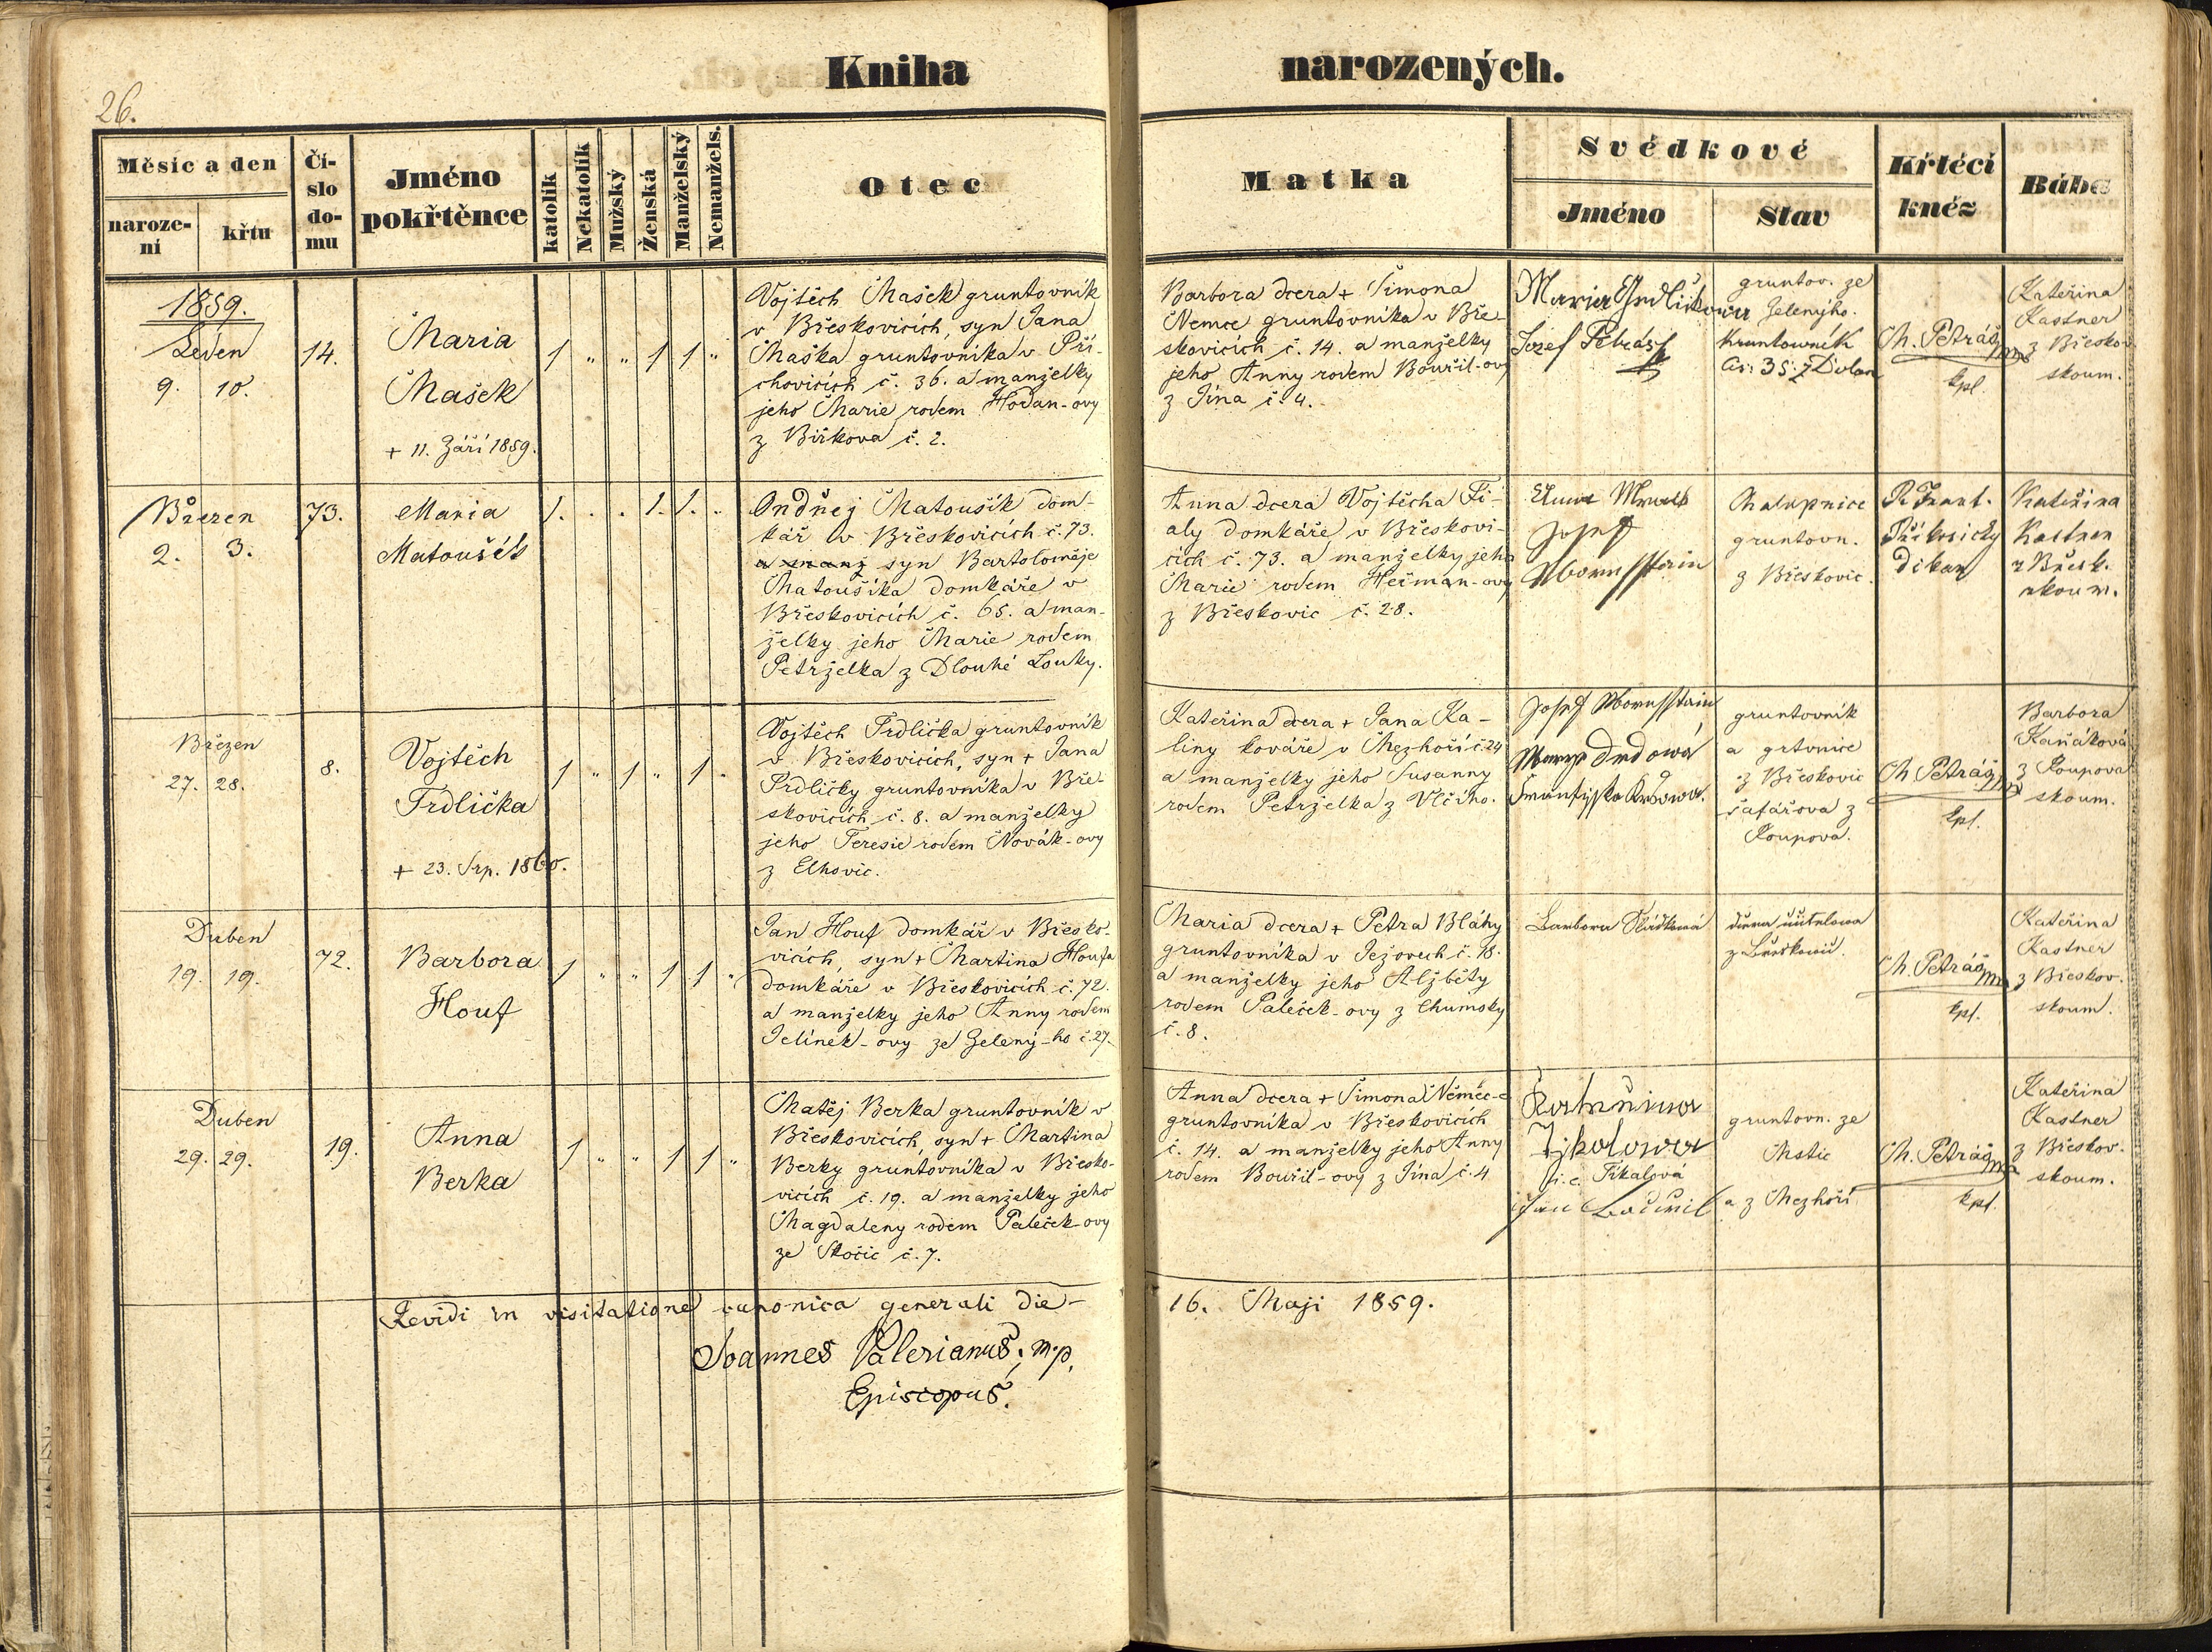 26.
Kniha narozených.
Měsíc a den
naroze-
ní
křtu
Čí-
slo
do-
mu
Jméno
pokřtěnce
katolík
Nekatolík
Mužský
Ženská
Manželský
Nemanžels.
Otec
Matka
Svědkové
Jméno
Stav
Křtěcí
kněz
Bába
1859.
Leden
9. 10.
14.
Maria
Mašek
+ 11. Září 1859.
1 " " 1 1 "
Vojtěch Mašek gruntovník
v Břeskovicích, syn Jana
Maška gruntovníka v Při-
chovicích č. 36. a manželky
jeho Marie rodem Hodan-ovy
z Birkova č. 2.
Barbora dcera + Šimona
Nemce gruntovníka v Bře-
skovicích č. 14. a manželky
jeho Anny rodem Bouřil-ovy
z Jína č. 4.
Maria
Jozef Petrásk
gruntov. ze
Zelenýho.
Kruntowník
Čís: 35: z Dolan
M. Petráš mp
kpl.
Kateřina
Kastner
z Břeskov.
skoum.
Březen
2. 3.
73.
Maria
Matoušék
1. . . 1. 1. .
Ondřej Matoušík dom-
kář v Břeskovicích č. 73.
a manž syn Bartoloměje
Matoušíka domkáře v
Břeskovicích č. 65. a man-
želky jeho Marie rodem
Petrželka z Dlouhé Louky.
Anna dcera Vojtěcha Fi-
aly domkáře v Břeskovi-
cích č. 73. a manželky jeho
Marie rodem Heřman-ovy
z Břeskovic č. 28.
Josef
Chalupnice
gruntovn.
z Břeskovic.
P. Frant.
Přikosický
Děkan
Kateřina
Kastner
z Břesk.
zkoum.
Březen
27. 28.
8.
Vojtěch
Trdlička
+ 23. Srp. 1860.
1 " 1 " 1 "
Vojtěch Trdlička gruntovník
v Břeskovicích, syn + Jana
Trdličky gruntovníka v Bře-
skovicích č. 8. a manželky
jeho Teresie rodem Novák-ovy
z Elhovic.
Kateřina dcera + Jana Ka-
liny kováře v Mezhoří č. 24
a manželky jeho Susanny
rodem Petrželka z Vlčího.
Josef
Františka
gruntovník
a grtvnice
z Břeskovic
šafářova z
Roupova.
M. Petráš mp
kpl.
Barbora
Kaňáková
z Roupova
skoum.
Duben
19. 19.
72.
Barbora
Houf
1 " " 1 1 "
Jan Houf domkář v Břesko-
vicích, syn + Martina Houfa
domkáře v Břeskovicích č. 72.
a manželky jeho Anny rodem
Jelínek-ovy ze Zelený-ho č. 27.
Maria dcera + Petra Bláhy
gruntovníka v Ježovech č. 18.
a manželky jeho Alžběty
rodem Paleček-ovy z Chumsky
č. 8.
Barbora
z Břeskowic.
M. Petráš mp
kpl.
Kateřina
Kastner
z Břeskov.
skoum.
Duben
29. 29.
19.
Anna
Berka
1 " " 1 1 "
Matěj Berka gruntovník v
Břeskovicích, syn + Martina
Berky gruntovníka v Břesko-
vicích č. 19. a manželky jeho
Magdaleny rodem Paleček-ovy
ze Skočic č. 7.
Anna dcera + Šimona Němec-e
gruntovníka v Břeskovicích
č. 14. a manželky jeho Anny
rodem Bouřil-ovy z Jína č. 4
Kateřina
Tikalowa
j. e. Tikalová
Jan Bouřil
gruntovn. ze
Mstic
a z Mezhoří
M. Petráš mp
kpl.
Kateřina
Kastner
z Břeskov.
skoum.
Revidi in visitatione canonica generali die - 16. Maji 1859.
Joannes Valerianus, m.p.
Episcopus.